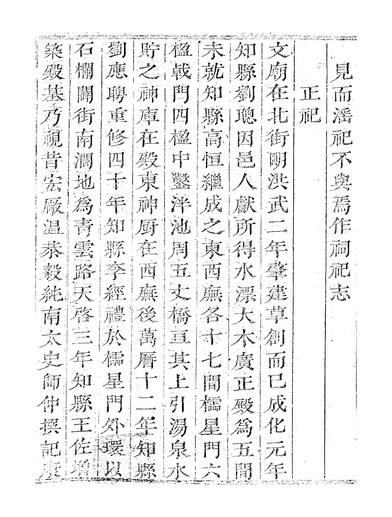 見而淫祀不與焉作祠祀志
正祀
文廟在北街明洪武二年肇建草創而已成化元年
知縣劉聰因邑人獻所得水漂大木廣正殿為五間
未就知縣高恒繼成之東西廡各十七間櫺星門六
楹㦸門四楹中鑿泮池周五丈橋亘其上引湯泉水
貯之神庫在殿東神厨在西廡後萬曆十二年知縣
劉應聘重修四十年知縣李經禮於櫺星門外環以
石欄闢街南澗地為青雲路天啓三年知縣王佐增
築殿基乃視昔宏厰溫恭毅純南太史師仲撰記康